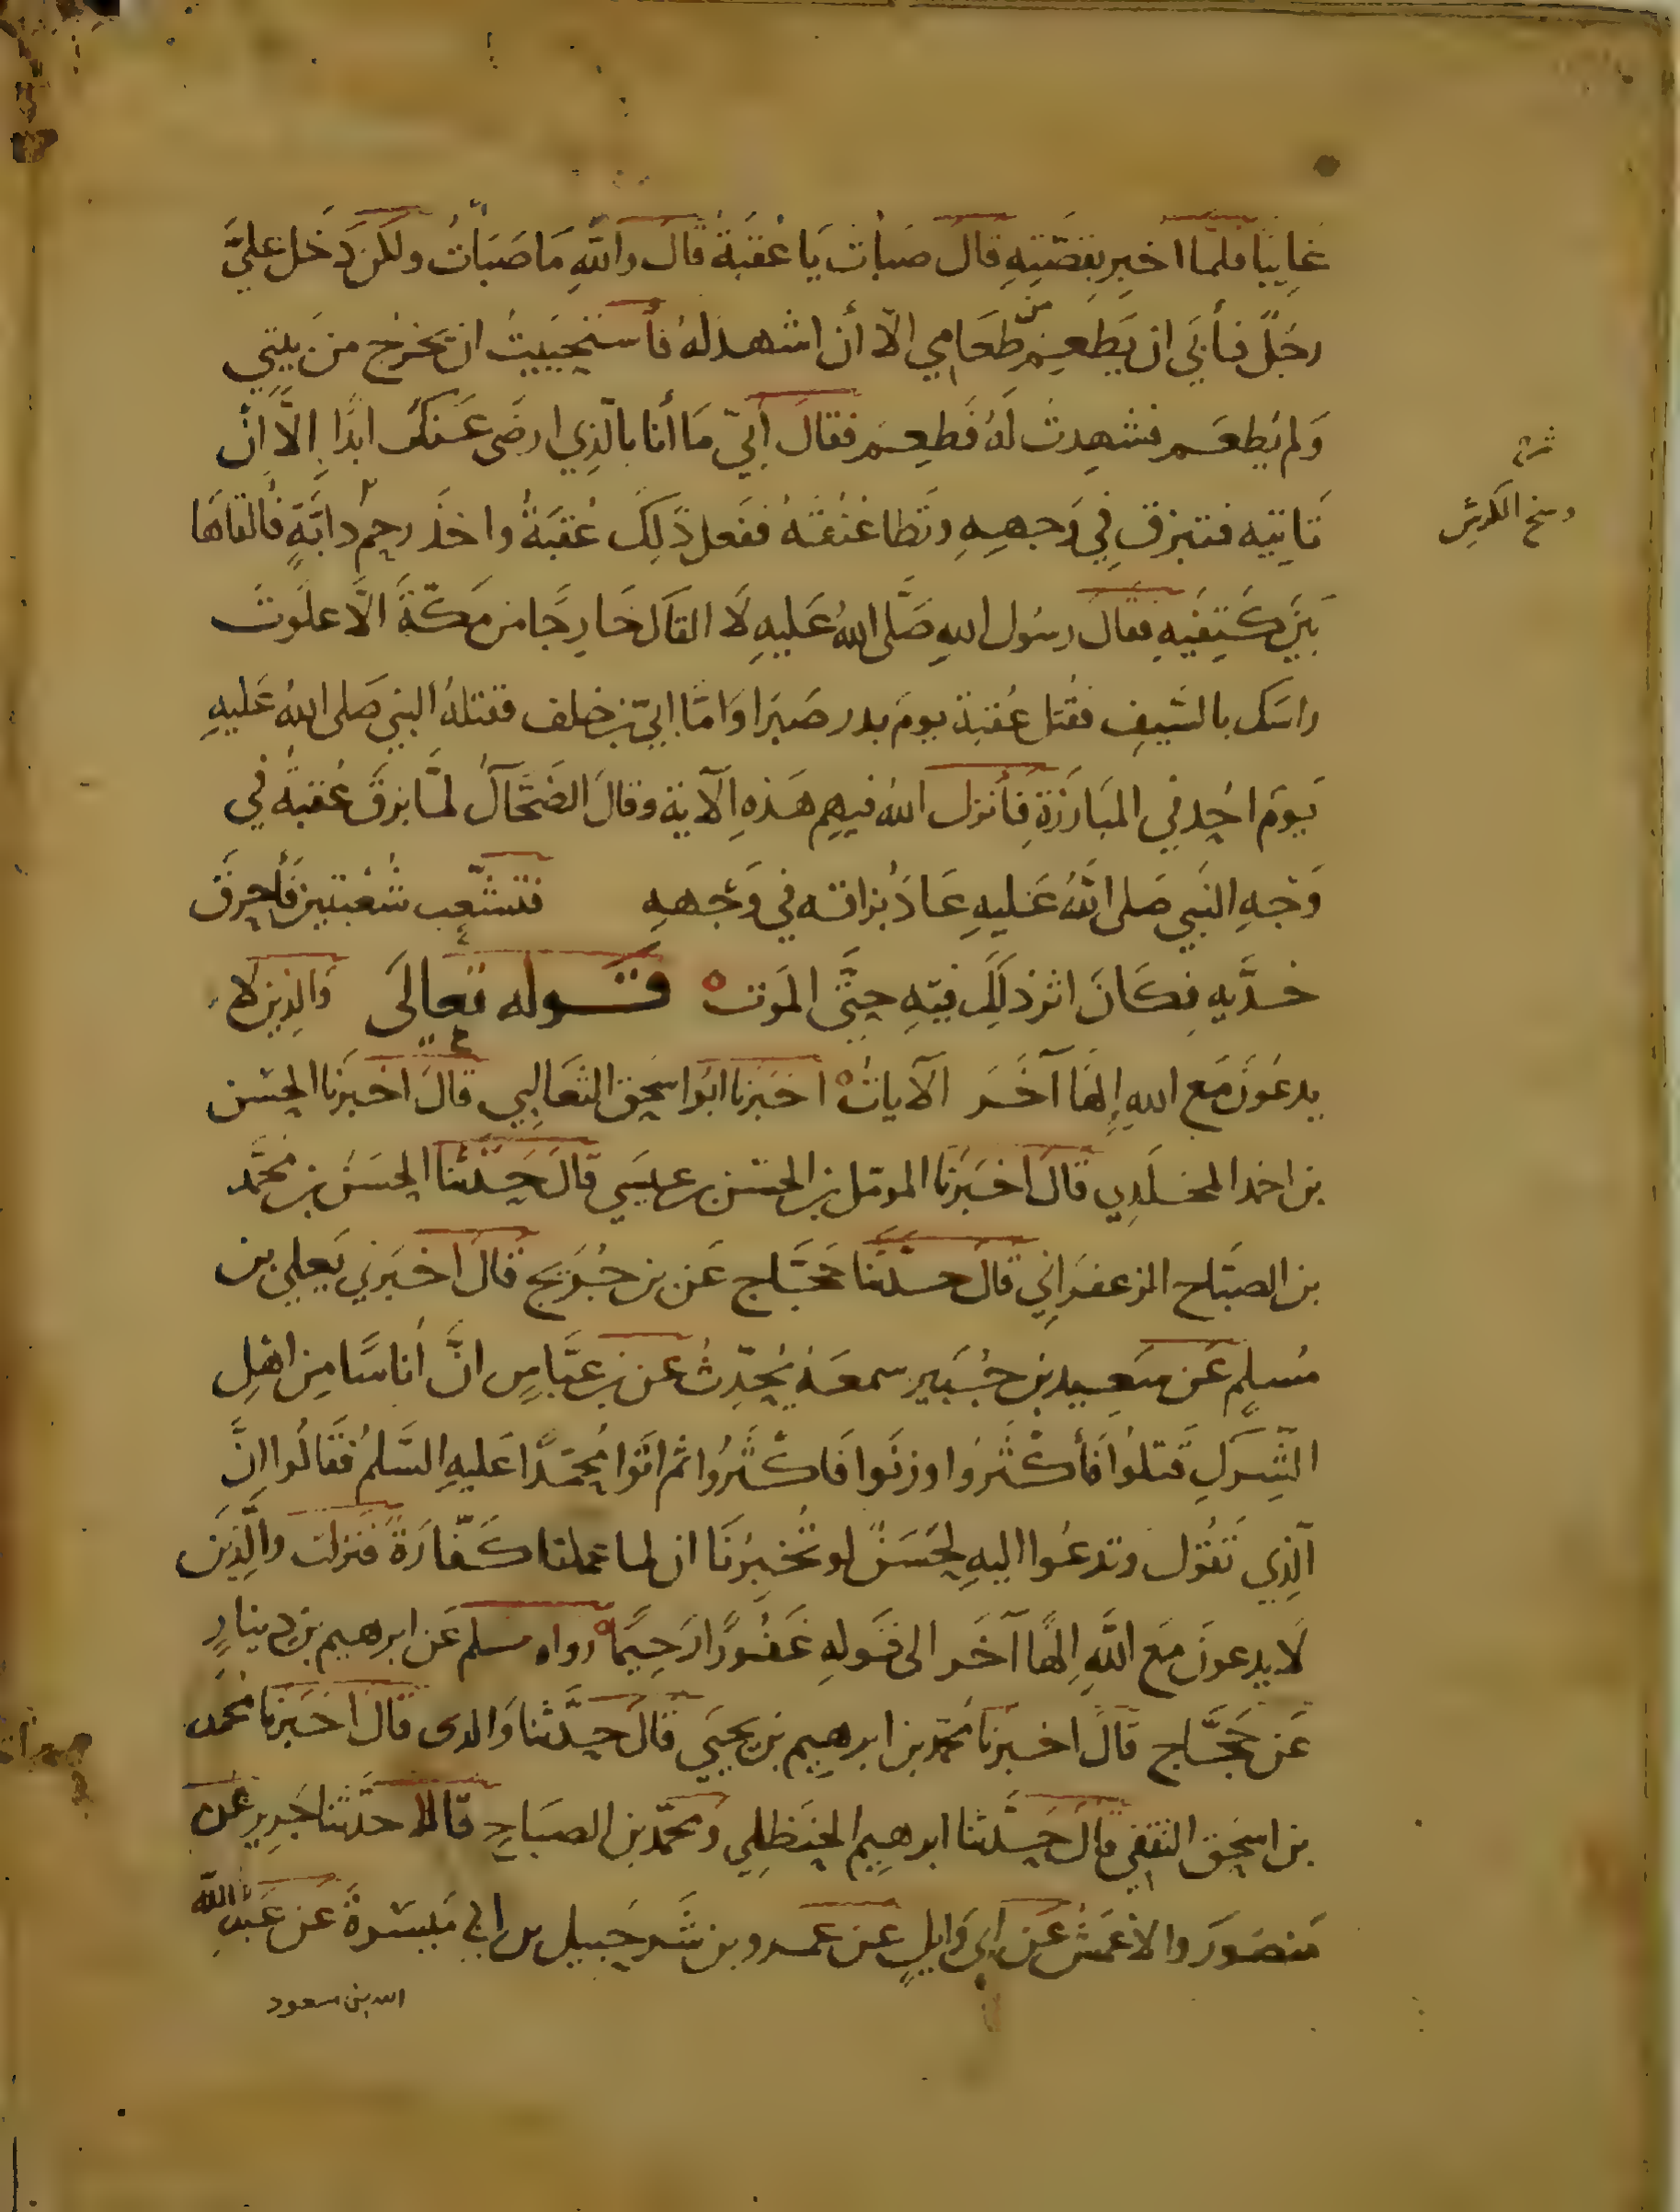 غايبا فلما اخبر بقصّتِهِ قال صبات يَا عُقبَة قال واللهِ مَا صَبَاتُ ولكن دَخل عليَّ
رجُل فأبَي ان يَطعم من طعَامِي الّا أن اشهد لهُ فأستحييتُ ان يخرُج من بيتي
وَلم يَطعَم فشهدتُ لَهُ فطعِم فقال أبيّ مَا أنا بالّذِي ارضَى عَنكَ ابدًا إلَّا أن
تَاتِيَه فتبزق فِي وَجههِ وتطا عُنُقهُ ففعل ذَلِكَ عُقبَةُ واخذ رحم دابَّةٍ فألقاهَا
بَيْن كَتِفَيهِ فقال رسُول اللهِ صَلَّى اللهُ عَليهِ لَا القاك خَارجًا من مَكّةَ الّا علَوتُ
راسَك بالسَيفِ فقُتل عُقبة يومَ بدر صَبرَا وَامَّا ابيّ بن خلف فقتلهُ النبي صَلى اللهُ عَليهِ
يَومَ احُد في المبَارَزةِ فأنزل اللهُ فيهم هَذهِ الآية وقال الضَحَّاك لمَّا بزقَ عُقبةُ في
وَجهِ النَبي صَلى اللهُ عَليهِ عَادَ بُزاقه في وَجههِ فتشَعّب شُعْبتين فأحرَقَ
خدَّيهِ فكَانَ اثر ذلِكَ فيهِ حتَّى المَوت قوله تعالَى وَالذِين لا
يدعُونَ مَع اللهِ إلهًا آخَر الآيات اخبَرنا ابوا سحٰق الثعَالِبي قال اخبَرنا الحسَن
بن احمد المخلَدِي قال اخبَرنَا المومّل بن الحسَن بن عيسَي قالَ حَدثنا الحسَنُ بن محمَّد
بن الصبّاح الزعفرَاني قال حدثنَا حجَّاج عَن بن جُرَيج قال اخبَرني يَعلي بن
مُسلمٍ عَن سَعيد بن جُبَير سمعَهُ يُحدِّثُ عَن بن عبَّاسٍ انَّ اناسًا مِن اهلِ
الشِركِ قَتلوُا فأكثَرُوا وزنَوا فَاكثَرُوا ثم اتَوا مُحمَّدًا عَليهِ السَّلمُ فقَالُوا انَّ
الّذِي تَقُول وتدعُوا اليهِ لحَسَنٌ لو تُخبِرُنَا ان لما عملنا كَفّارَةً فنزلت والَّذِينَ
لَا يدعونَ مَع اللَّهِ إلهًا آخَر الى قَولهِ غَفُورًا رَحِيمًا رواه مسلم عَن ابرهيم بن دينارٍ
عَن حجَّاج قال اخبرنَا محمّد بن ابرهيم بن يحيَي قالَ حدَّثنا وَالدى قال اخبَرنَا مُحمّد
بن اسحٰق الثقفي قال حَدَّثنا ابرهيم الحنظلي ومحمّد بن الصبَاح قالا حدَّثنا جَرير عَن
مَنصُورَ والاعْمَش عَن ابي وَايلٍ عَن عمرو بن شَرحَبيل بن ابي مَيسَرةَ عَن عَبدِ الله
الله بن مسعود
شرح
وسخ الكرش